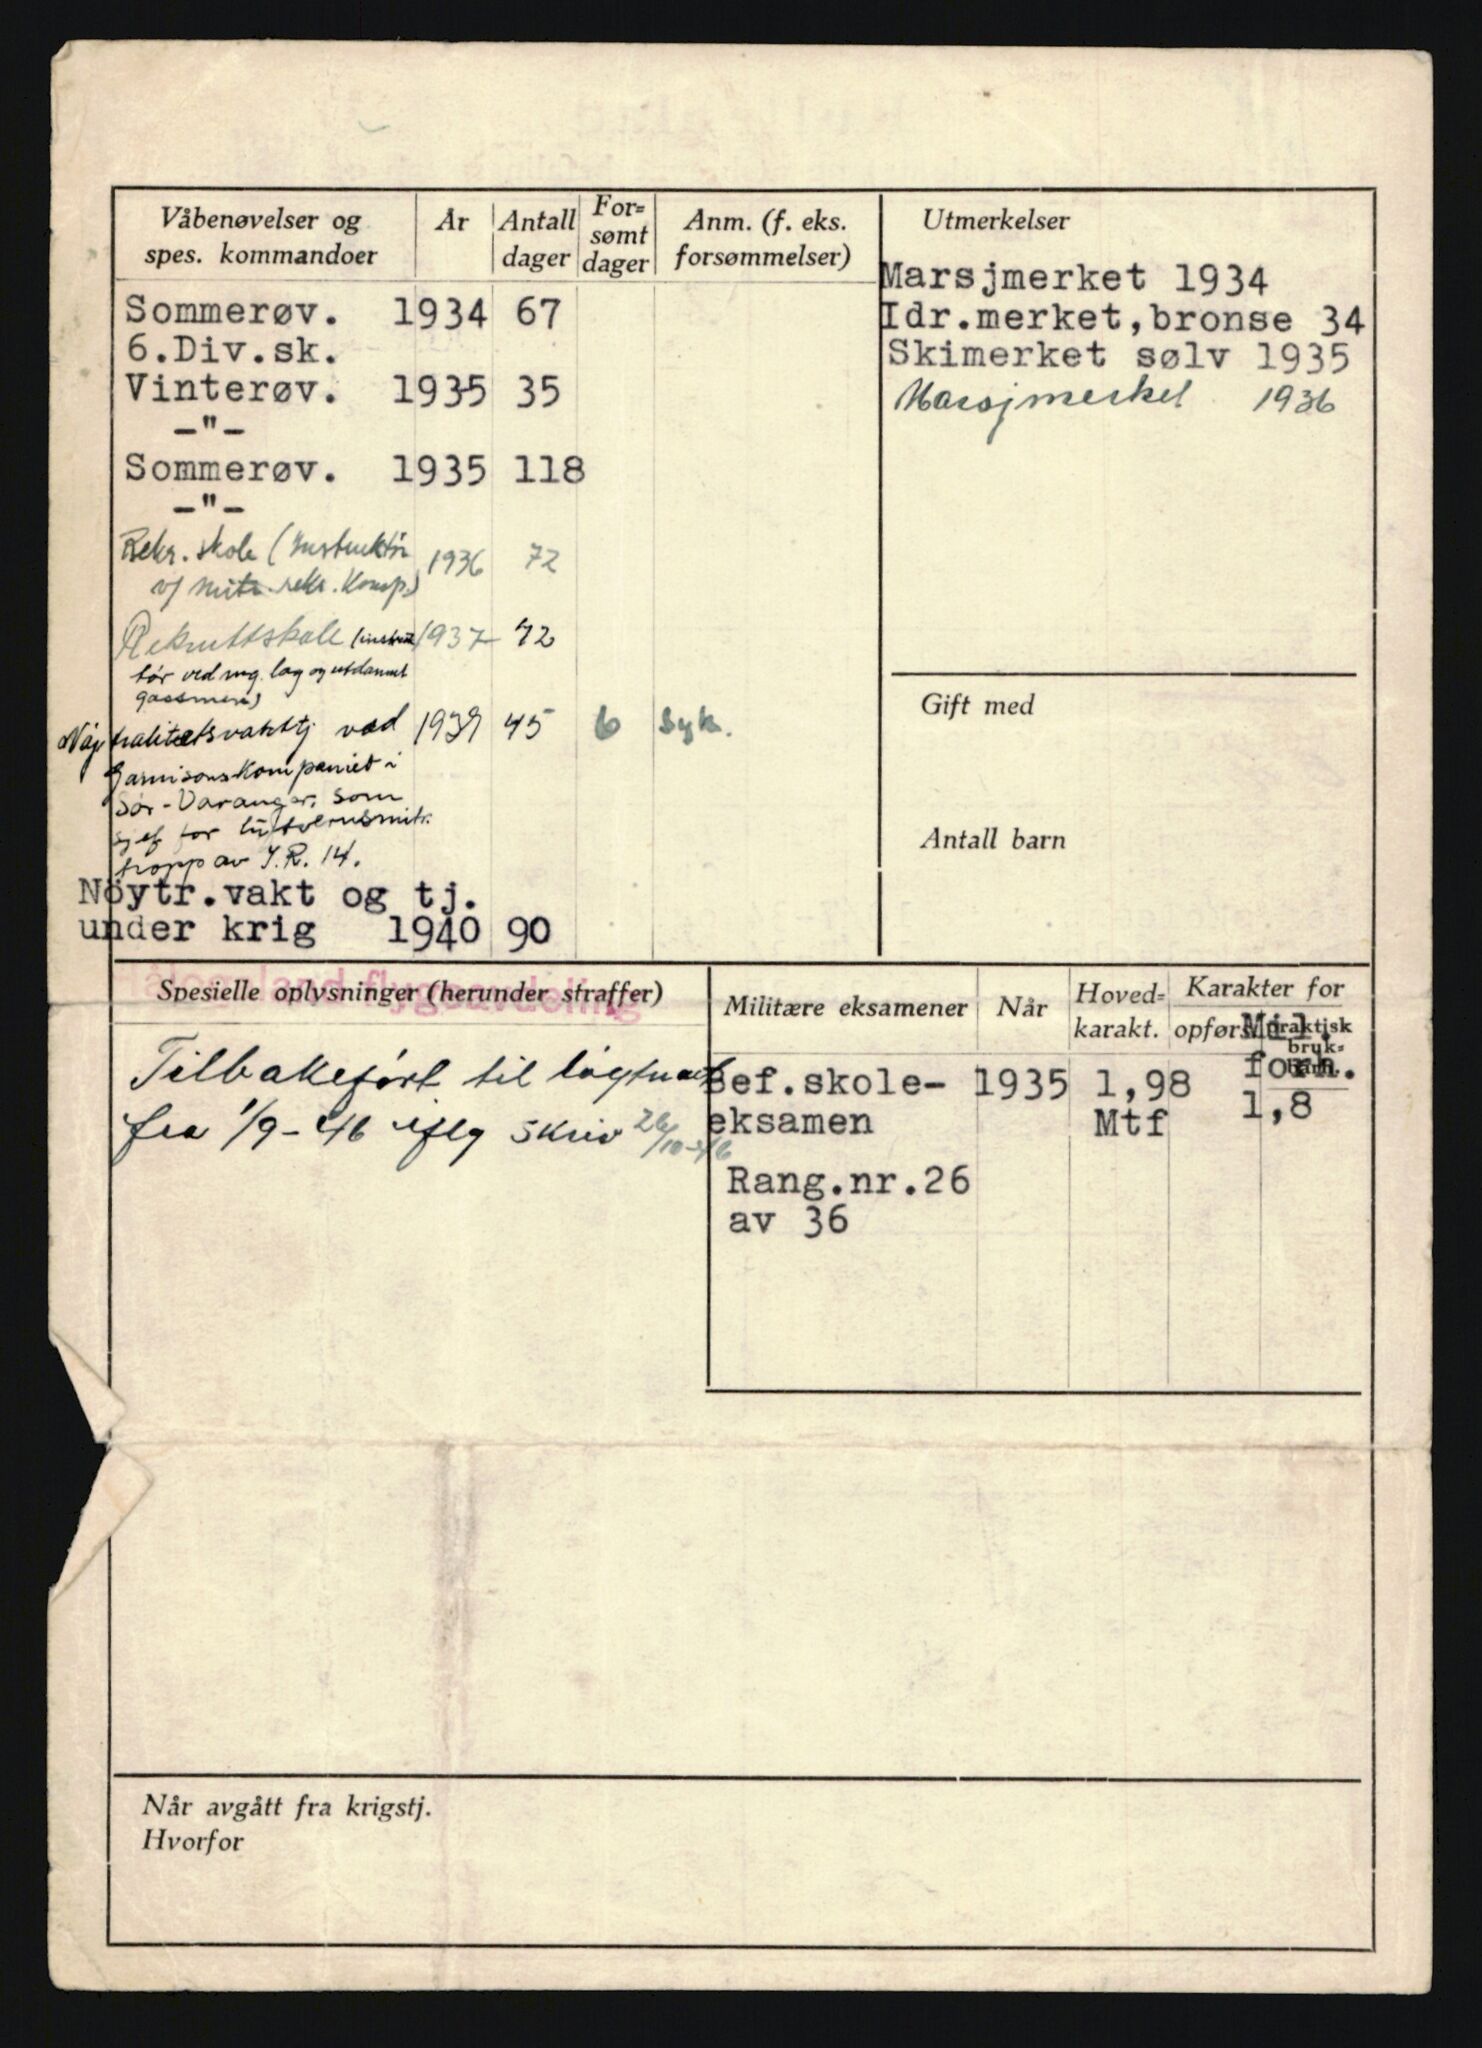 Våbenøvelser og
spes. kommandoer
År
Antall
dager
For=
sømt
dager
Anm. (f. eks.
forsømmelser)
Sommerøv. 1934 67
6.Div.sk.
Vinterøv. 1935 35
-"-
Sommerøv. 1935 118
-"-
Rekr. skole (Instruktør 1936 72
v/ mitr. rekr. komp.)
Rekruttskole (instruk 1937 72
tør ved mg. lag og utdannet
gassmere)
Nøytralitetsvakttj ved 1939 45 6 syk.
Garnisonskompaniet i
Sør-Varanger, som
sjef for luftvernsmitr.
tropp av I.R. 14.
Nöytr.vakt og tj.
under krig 1940 90
Utmerkelser
Marsjmerket 1934
Idr.merket,bronse 34
Skimerket sølv 1935
Marsjmerket 1936
Gift med
Antall barn
Hålogaland flygeavdeling
Spesielle oplysninger (herunder straffer)
Tilbakeført til løgtnant
fra 1/9-46 iflg skriv 26/10-46
Militære eksamener
Når
Hoved=
karakt.
Karakter for
opførs
praktisk
bruk=
barh.
Mil.
forh.
Bef.skole- 1935 1,98 1,8
eksamen Mtf
Rang.nr.26
av 36
Når avgått fra krigstj.
Hvorfor